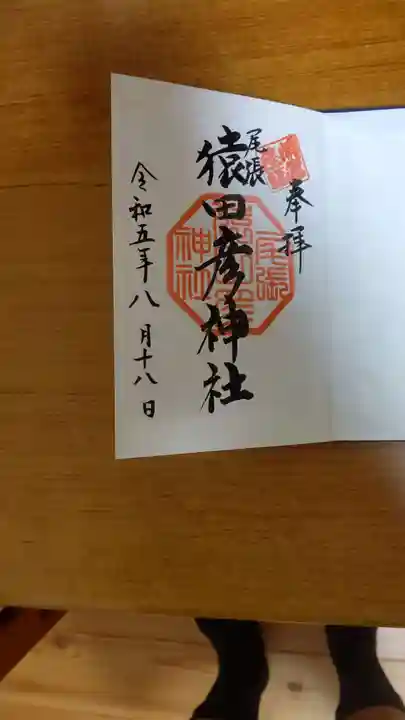 奉拝
尾張
猿田彦神社
尾張
神社
令和五年八月十八日